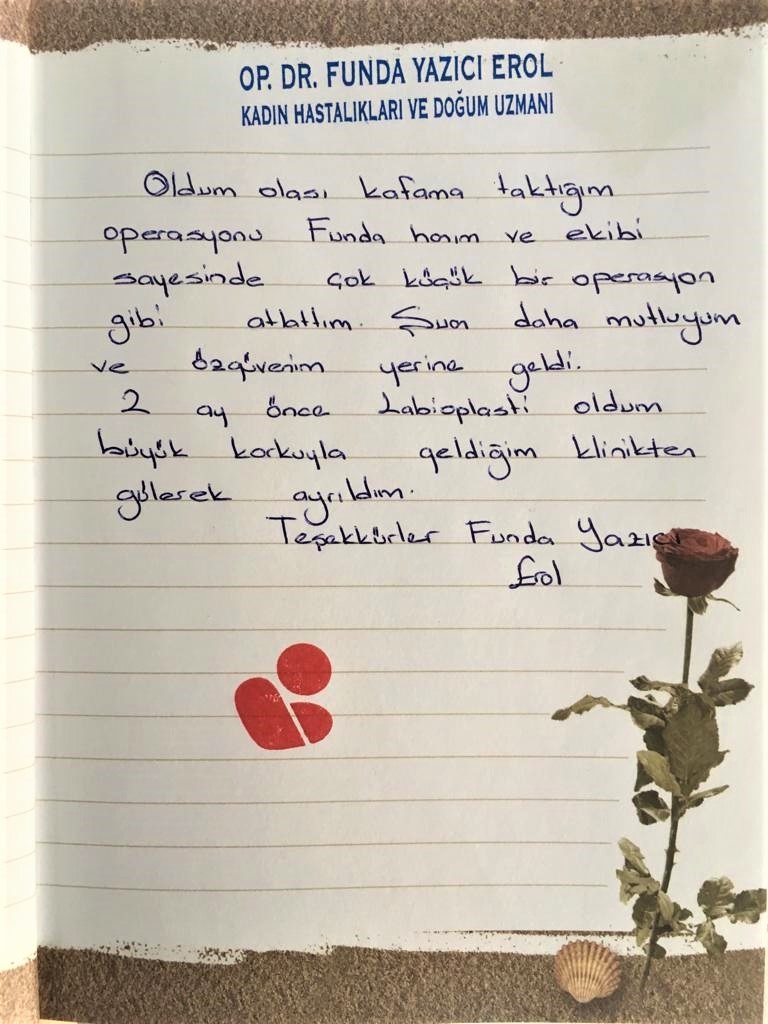 OP. DR. FUNDA YAZICI EROL
KADIN HASTALIKLARI VE DOĞUM UZMANI
Oldum olası kafama taktığım
operasyonu Funda hanım ve ekibi
sayesinde çok küçük bir operasyon
gibi atlattım. Şuan daha mutluyum
ve özgüvenim yerine geldi.
2 ay önce Labioplasti oldum
büyük korkuyla geldiğim klinikten
gülerek ayrıldım.
Teşekkürler Funda Yazıcı
Erol